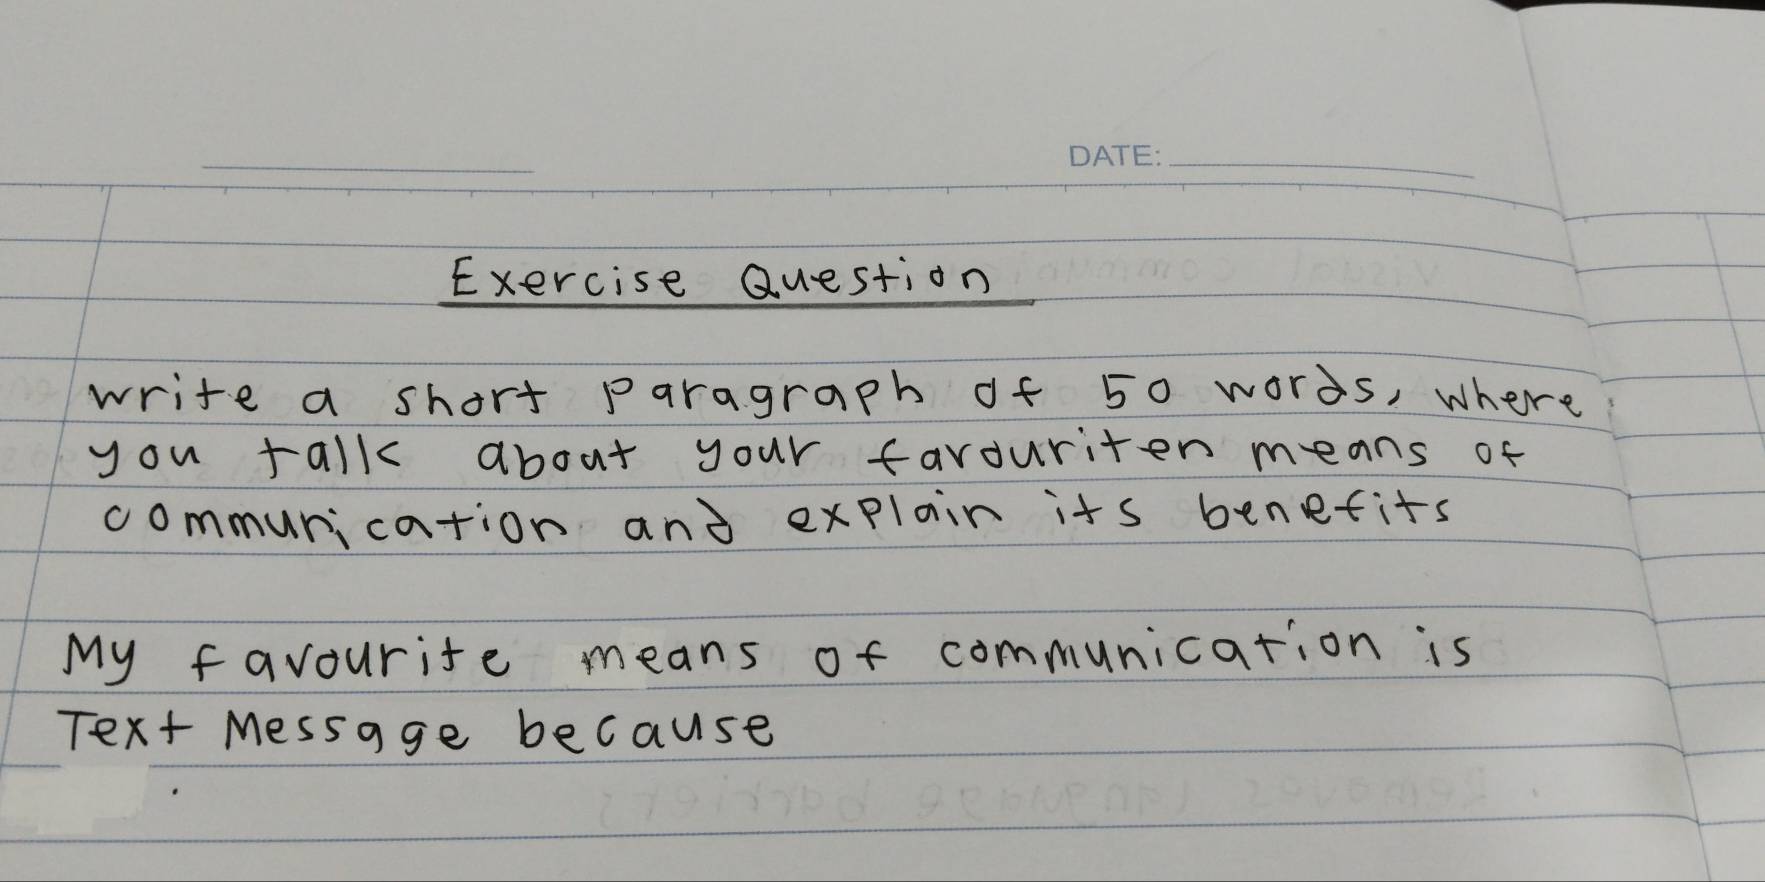 DATE:
Exercise Question
write a short paragraph of 50 words, where
you talk about your favouriten means of
communication and explain its benefits
My favourite means of communication is
Text Message because
visual commun
Removes language barriers